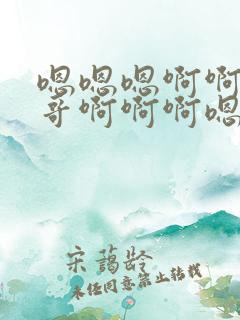 嗯嗯嗯啊啊
哥啊啊啊嗯
宋蔼龄
未经同意禁止转载